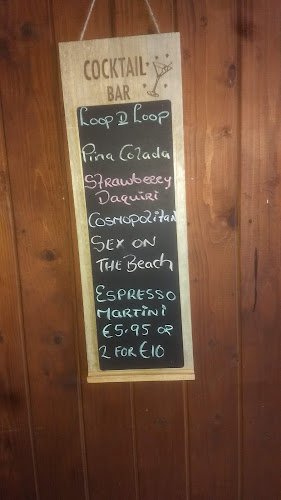 COCKTAIL
BAR
Loop D Loop
Pina Colada
Strawberry
Daquiri
Cosmopolitan
Sex on
The Beach
Espresso
Martini
€5.95 or
2 for €10